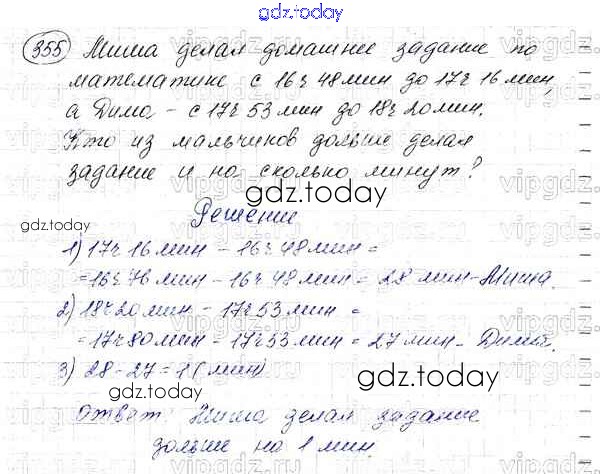 gdz.today
355 Миша делал домашнее задание по
математике с 16ч 48мин до 17ч 16мин,
а Дима – с 17ч 53мин до 18ч 20мин.
Кто из мальчиков дольше делал
задание и на сколько минут?
gdz.today
gdz.today
Решение
1) 17ч 16мин – 16ч 48мин =
= 16ч 76мин – 16ч 48мин = 28 мин – Миша.
2) 18ч 20мин – 17ч 53мин =
= 17ч 80мин – 17ч 53мин = 27мин – Дима.
3) 28 – 27 = 1 (мин)
gdz.today
Ответ: Миша делал задание
дольше на 1 мин.
gdz.today